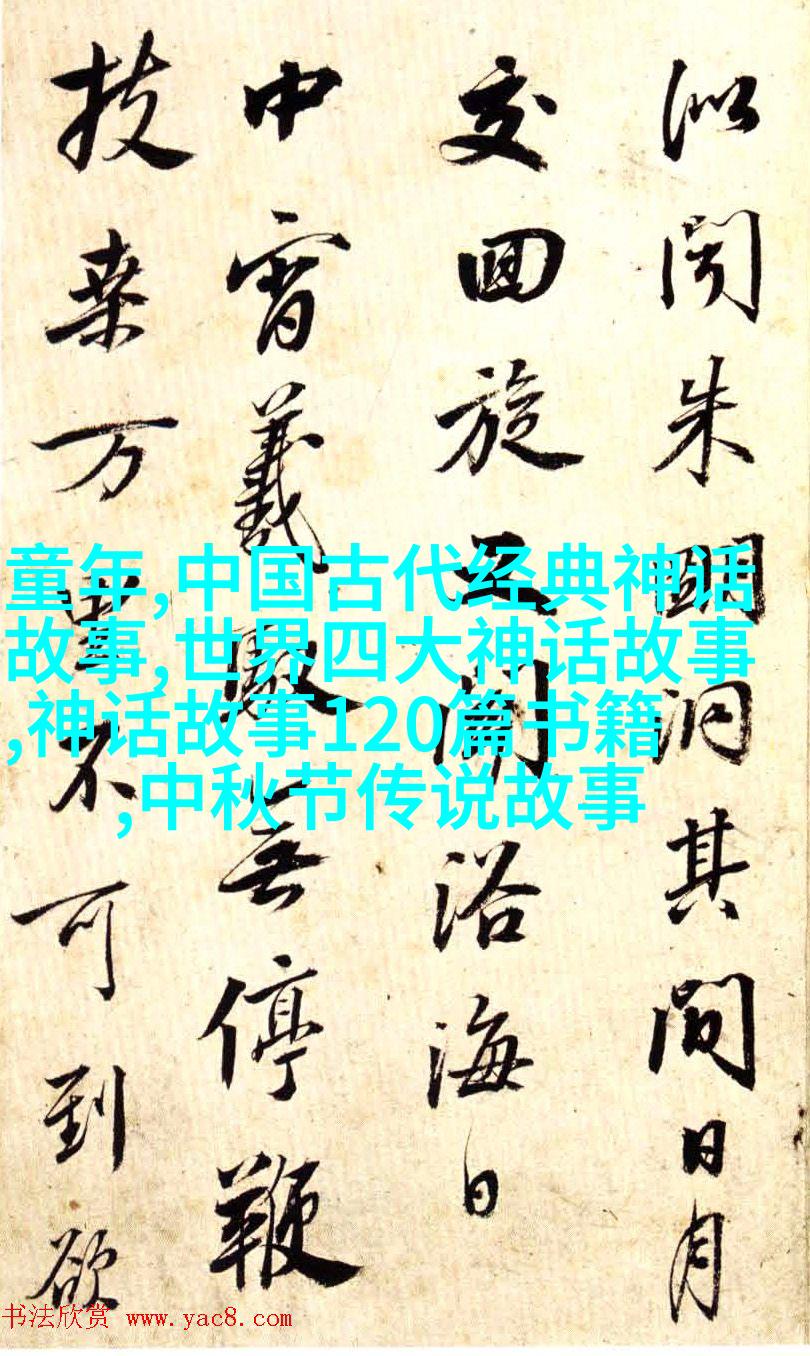 似聞朱明洞其間日月
交回旋浴海日
中宵義馭無停鞭
扶桑万里不可到欲
童年,中国古代经典神话
故事,世界四大神话故事
,神话故事120篇书籍
,中秋节传说故事
书法欣赏 www.yac8.com